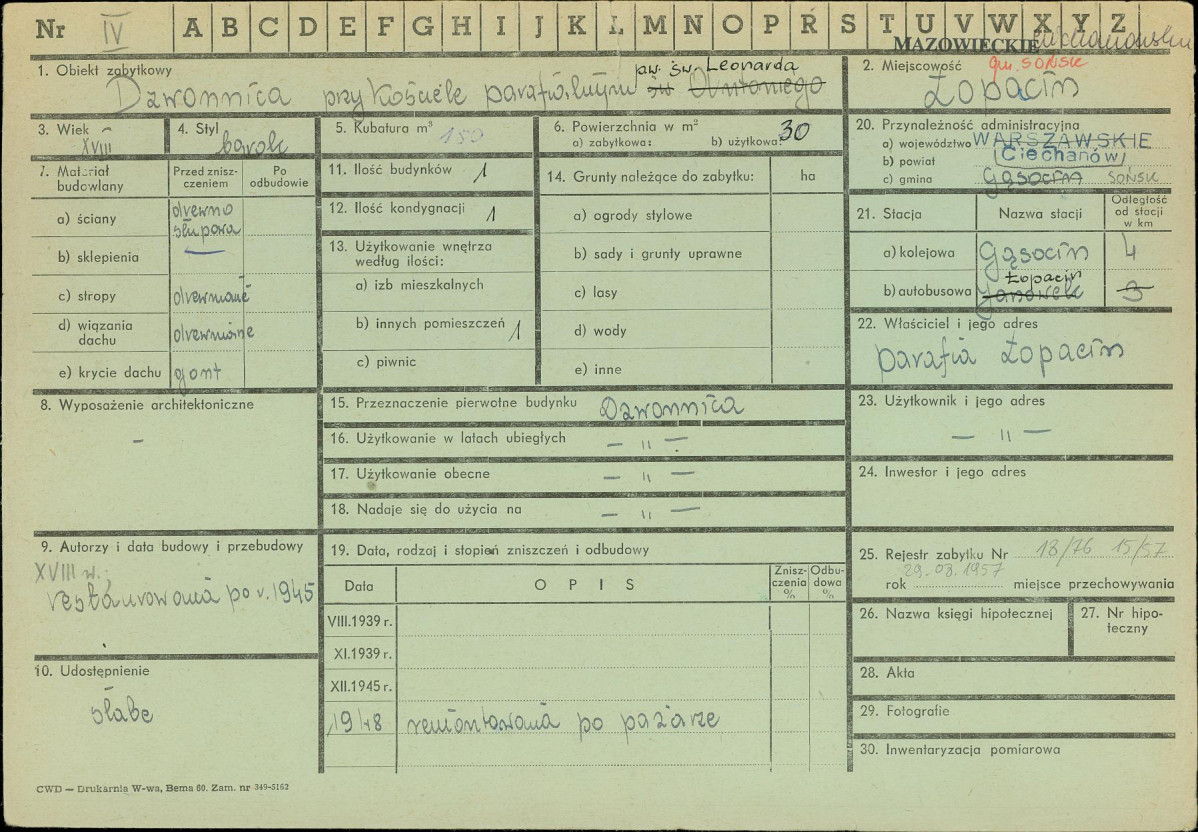 Nr IV A B C D E F G H I J K L M N O P R S T U V W X Y Z
MAZOWIECKIE
1. Obiekt zabytkowy
pw. św. Leonarda
Dzwonnica przy kościele parafialnym św
2. Miejscowość gm. SOŃSK
Łopacin
3. Wiek XVIII
4. Styl barok
5. Kubatura m³ 150
6. Powierzchnia w m²
a) zabytkowa: b) użytkowa: 30
7. Materiał budowlany
Przed zniszczeniem
Po odbudowie
a) ściany drewno słupowa
b) sklepienia
c) stropy drewniane
d) wiązania dachu drewniane
e) krycie dachu gont
8. Wyposażenie architektoniczne
–
9. Autorzy i data budowy i przebudowy
XVIII w.
restaurowana po r. 1945
10. Udostępnienie
słabe
11. Ilość budynków 1
12. Ilość kondygnacji 1
13. Użytkowanie wnętrza według ilości:
a) izb mieszkalnych
b) innych pomieszczeń 1
c) piwnic
14. Grunty należące do zabytku: ha
a) ogrody stylowe
b) sady i grunty uprawne
c) lasy
d) wody
e) inne
15. Przeznaczenie pierwotne budynku Dzwonnica
16. Użytkowanie w latach ubiegłych – " –
17. Użytkowanie obecne – " –
18. Nadaje się do użycia na – " –
19. Data, rodzaj i stopień zniszczeń i odbudowy
Data
OPIS
Zniszczenia %
Odbudowa %
VIII.1939 r.
XI.1939 r.
XII.1945 r.
1948 remontowana po pożarze
20. Przynależność administracyjna
a) województwo WARSZAWSKIE
b) powiat (Ciechanów)
c) gmina Gąsocin SOŃSK
21. Stacja
Nazwa stacji
Odległość od stacji w km
a) kolejowa Gąsocin 4
Łopacin
b) autobusowa Janówek 3
22. Właściciel i jego adres
parafia Łopacin
23. Użytkownik i jego adres
– " –
24. Inwestor i jego adres
25. Rejestr zabytku Nr 18/76 15/57
29.03.1957
rok miejsce przechowywania
26. Nazwa księgi hipotecznej
27. Nr hipoteczny
28. Akta
29. Fotografie
30. Inwentaryzacja pomiarowa
CWD — Drukarnia W-wa, Bema 60. Zam. nr 349-5162